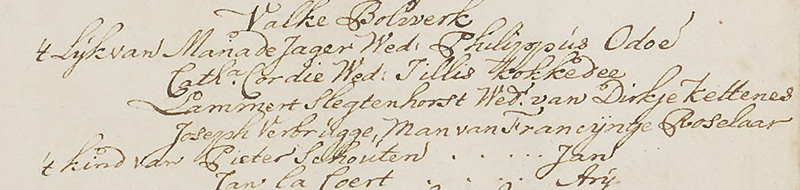 Valke Bolwerk
't Lijk van Maria de Jager Wed: Philippus Odoé
Cath:a Cordie Wed: Jillis Kokkedee
Lammert Slegtenhorst Wed.r van Dirkje Kettenes
Joseph Verbrugge, Man van Francijnge Roselaar
't kind van Pieter Schouten . . . . . . Jan
Jan La Coert . . . . . . Arij